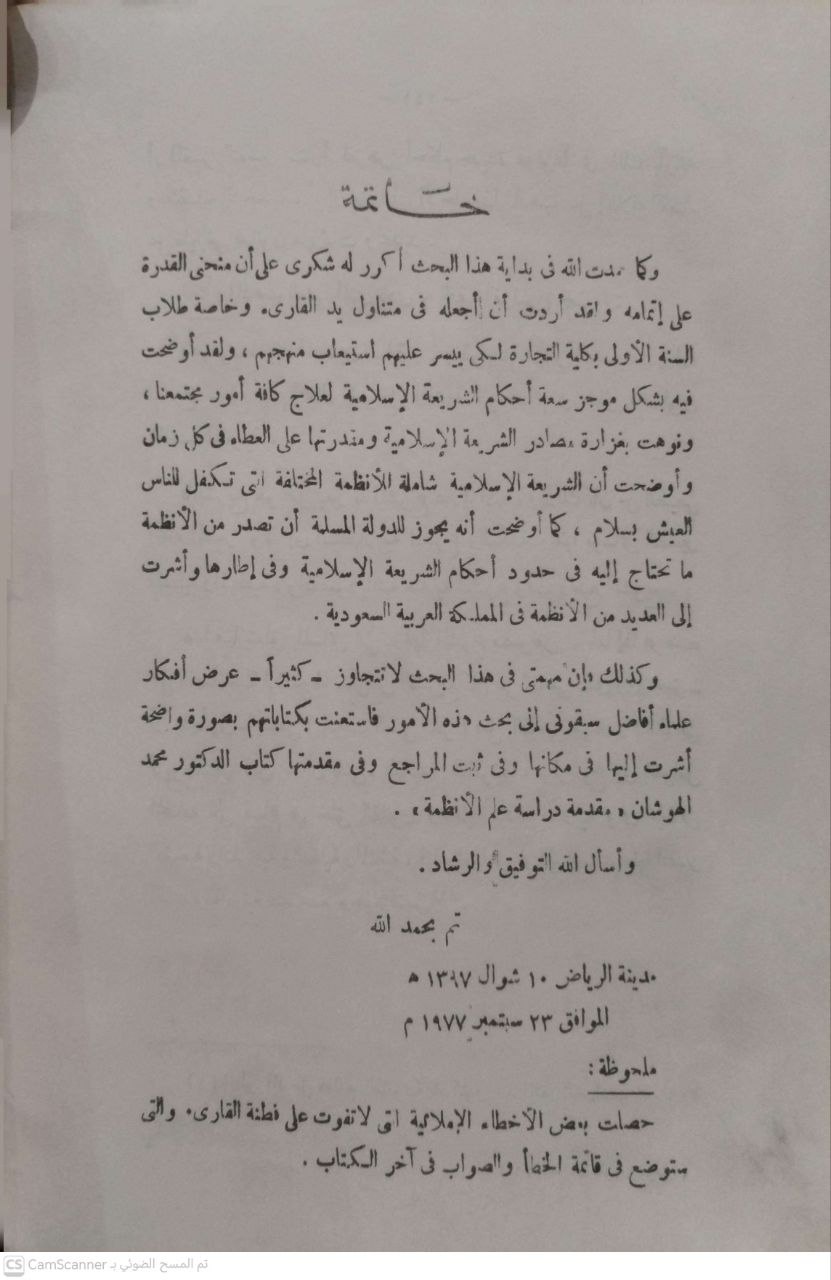 خاتمة
وكما حمدت الله فى بداية هذا البحث أكرر له شكرى على أن منحنى القدرة
على إتمامه ولقد أردت أن أجعله فى متناول يد القارىء وخاصة طلاب
السنة الأولى بكلية التجارة لكى ييسر عليهم استيعاب منهجهم ، ولقد أوضحت
فيه بشكل موجز سعة أحكام الشريعة الإسلامية لعلاج كافة أمور مجتمعنا ،
ونوهت بغزارة مصادر الشريعة الإسلامية ومقدرتها على العطاء فى كل زمان
وأوضحت أن الشريعة الإسلامية شاملة للأنظمة المختلفة التى تكفل للناس
العيش بسلام ، كما أوضحت أنه يجوز للدولة المسلمة أن تصدر من الأنظمة
ما تحتاج إليه فى حدود أحكام الشريعة الإسلامية وفى إطارها وأشرت
إلى العديد من الأنظمة فى المملكة العربية السعودية .
وكذلك فإن مهمتى فى هذا البحث لا تتجاوز – كثيراً – عرض أفكار
علماء أفاضل سبقونى إلى بحث هذه الأمور فاستعنت بكتاباتهم بصورة واضحة
أشرت إليها فى مكانها وفى ثبت المراجع وفى مقدمتها كتاب الدكتور محمد
الهوشان « مقدمة دراسة علم الأنظمة » .
وأسأل الله التوفيق والرشاد .
تم بحمد الله
مدينة الرياض ١٠ شوال ١٣٩٧ ه
الموافق ٢٣ سبتمبر ١٩٧٧ م
ملحوظة :
حصلت بعض الأخطاء الإملائية التى لا تفوت على فطنة القارىء والتى
ستوضع فى قائمة الخطأ والصواب فى آخر الكتاب .
CS CamScanner تم المسح الضوئي بـ